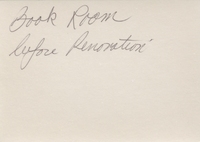 Book Room
before Renovation